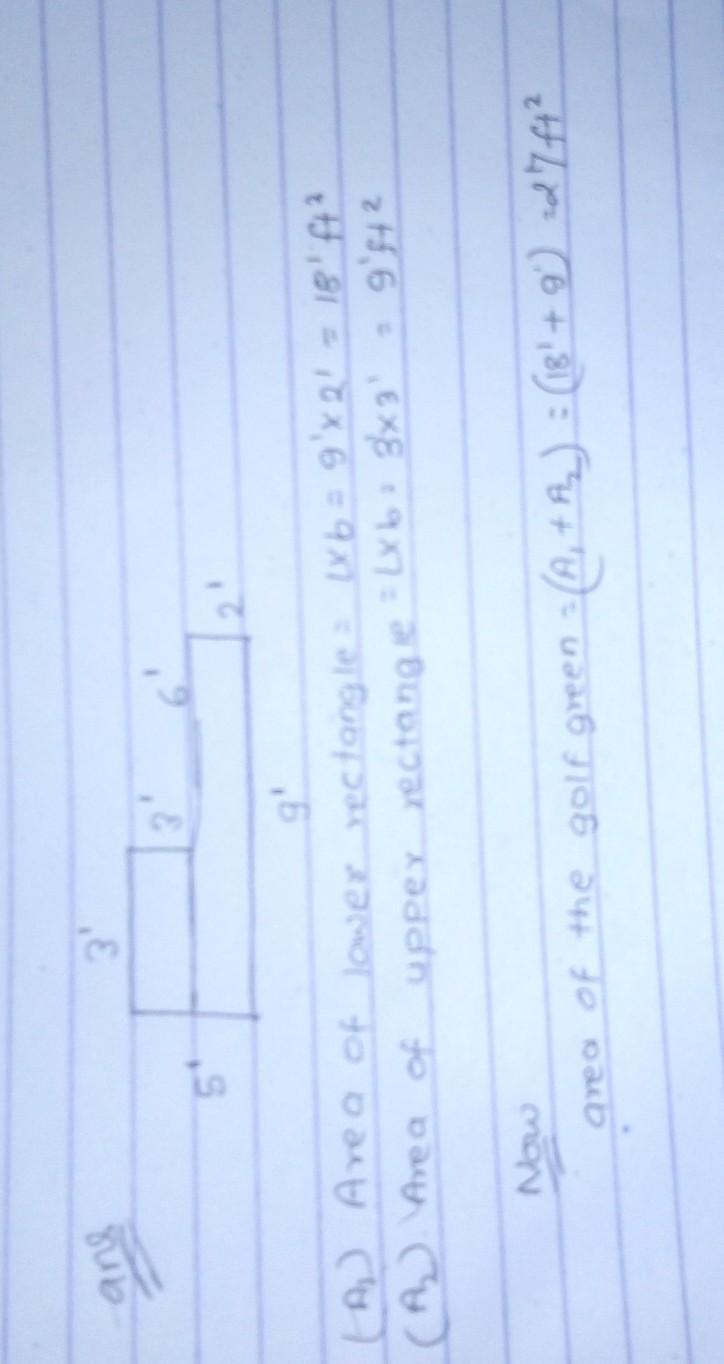 ans
3'
3'
6'
5'
2'
9'
(A₁) Area of lower rectangle = L×b = 9'×2' = 18' ft²
(A₂) Area of upper rectangle = L×b = 3×3' = 9' ft²
Now
area of the golf green = (A₁ + A₂) = (18' + 9') = 27 ft²